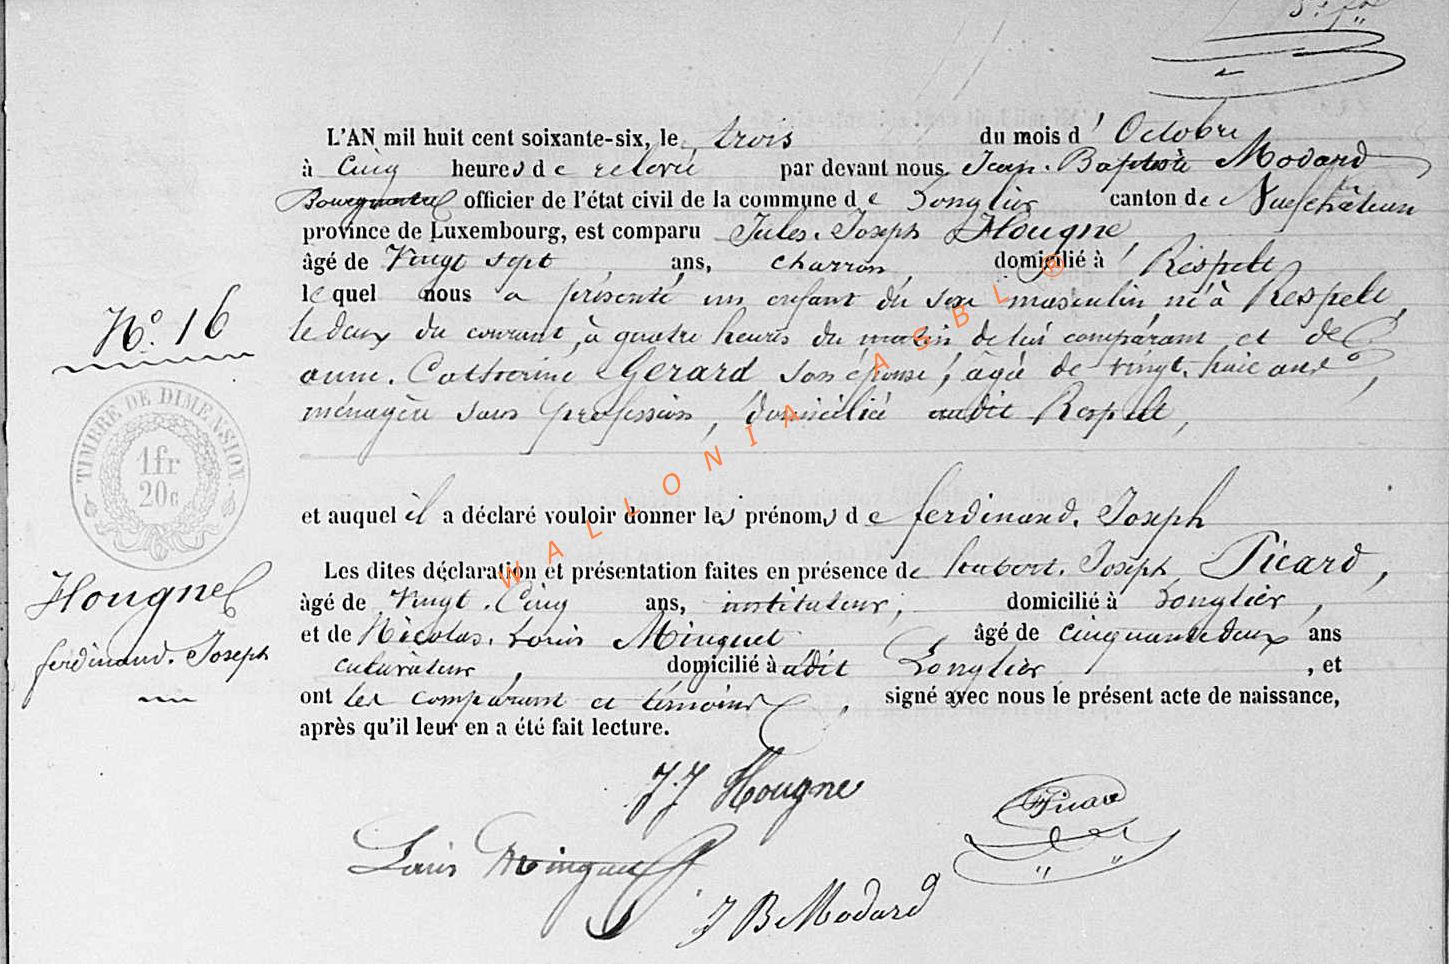 L'AN mil huit cent soixante-six, le trois du mois d' Octobre
à Cinq heures de relevée par devant nous Jean-Baptiste Modard
Bourgmestre officier de l'état civil de la commune de Longlier canton de Neufchâteau
province de Luxembourg, est comparu Jules-Joseph Hougne,
âgé de Vingt sept ans, charron, domicilié à Respelt,
lequel nous a présenté un enfant du sexe masculin, né à Respelt,
le deux du courant, à quatre heures du matin de lui comparant et de
anne-Catherine Gerard son épouse, âgée de vingt-huit ans,
ménagère sans profession, domiciliée audit Respelt,
N°. 16
TIMBRE DE DIMENSION
1fr
20c
et auquel il a déclaré vouloir donner les prénoms de ferdinand-Joseph
Les dites déclaration et présentation faites en présence de hubert-Joseph Picard,
âgé de Vingt-Cinq ans, instituteur, domicilié à Longlier,
et de Nicolas-Louis Minguet âgé de cinquante deux ans
cultivateur, domicilié à dit Longlier, et
ont les comparant et témoins, signé avec nous le présent acte de naissance,
après qu'il leur en a été fait lecture.
Hougne
ferdinand-Joseph
J.J Hougne
Picard
Louis Minguet
J B Modard
WALLONIA ASBL ®